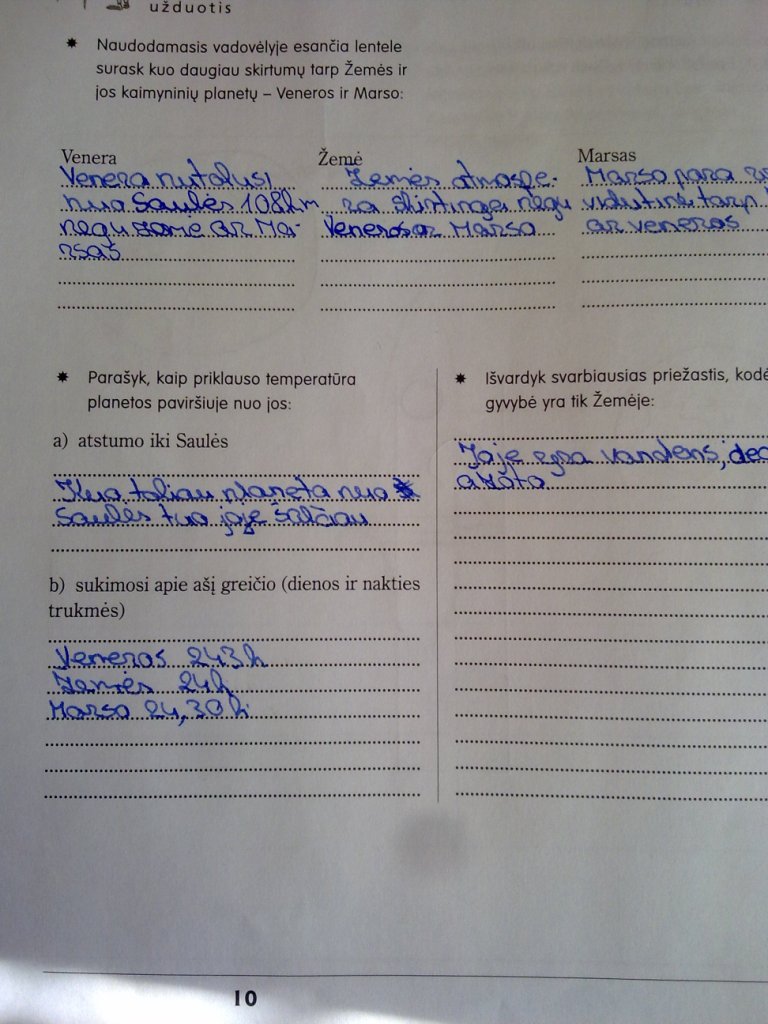 užduotis
Naudodamasis vadovėlyje esančia lentele
surask kuo daugiau skirtumų tarp Žemės ir
jos kaimyninių planetų – Veneros ir Marso:
Venera
Venera nutolusi
nuo Saulės 108km
negu žeme ar Ma-
rsas
Žemė
Žemės atmosfe-
ra skirtinga negu
Veneros ar Marso
Marsas
Marso para
vidutinė tarp
ar veneros
Parašyk, kaip priklauso temperatūra
planetos paviršiuje nuo jos:
a) atstumo iki Saulės
Kuo toliau planeta nuo
Saulės tuo joje šalčiau
b) sukimosi apie ašį greičio (dienos ir nakties
trukmės)
Veneros 243h
Žemės 24h
Marso 24,30h
Išvardyk svarbiausias priežastis, kodė
gyvybė yra tik Žemėje:
Joje yra vandens, deg
10